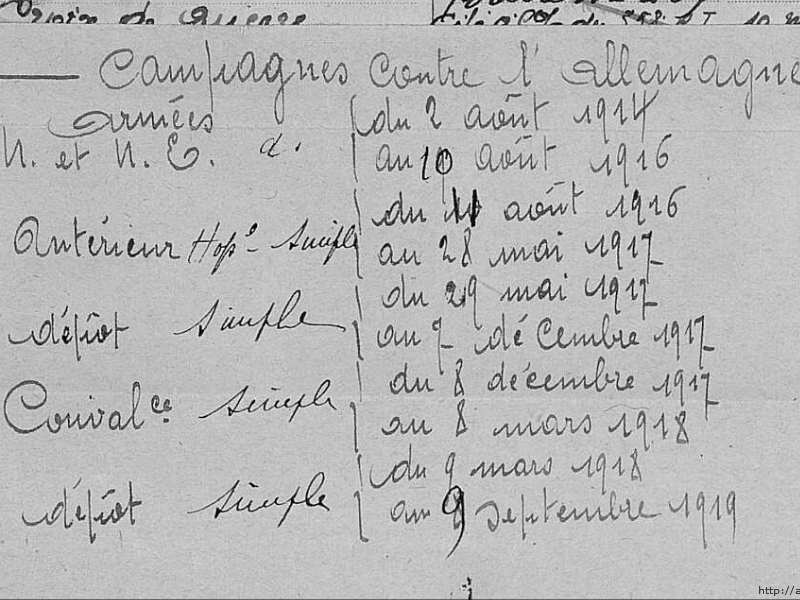 Campagnes contre l'Allemagne
Armées
N. et N. E. d.
du 2 août 1914
au 10 août 1916
Antérieur Hop. Simple
du 11 août 1916
au 28 mai 1917
dépôt simple
du 29 mai 1917
au 7 décembre 1917
Conval ce simple
du 8 décembre 1917
au 8 mars 1918
dépôt simple
du 9 mars 1918
au 9 septembre 1919
http://a